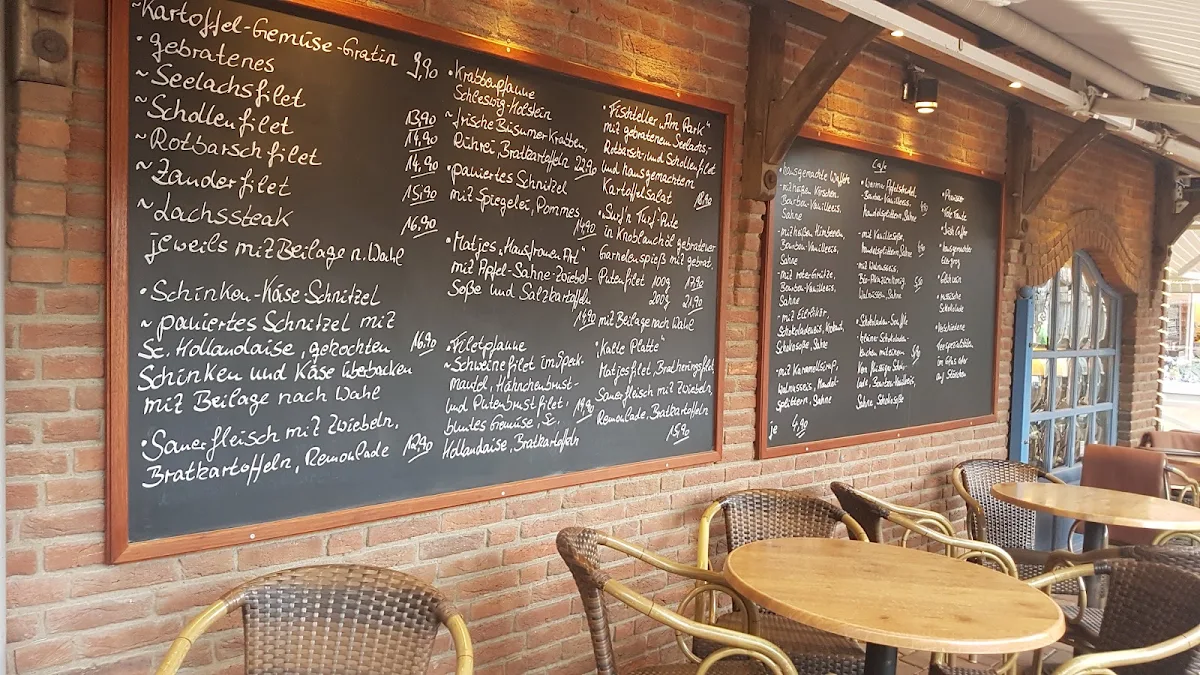 ~Kartoffel-Gemüse-Gratin 9,90
· gebratenes
~ Seelachsfilet 13,90
~ Schollenfilet 14,90
~ Rotbarschfilet 14,90
~ Zanderfilet 15,90
~ Lachssteak 16,90
jeweils mit Beilage n. Wahl
· Schinken-Käse-Schnitzel
~ paniertes Schnitzel mit
Sc. Hollandaise, gekochten 16,90
Schinken und Käse überbacken
mit Beilage nach Wahl
· Sauerfleisch mit Zwiebeln,
Bratkartoffeln, Remoulade 12,90
· Krabbenpfanne
Schleswig-Holstein
~ frische Büsumer Krabben,
Rührei, Bratkartoffeln 22,90
· paniertes Schnitzel
mit Spiegelei, Pommes
14,90
· Matjes "Hausfrauen Art"
mit Apfel-Sahne-Zwiebel-
Soße und Salzkartoffeln
14,90
· Filetpfanne
~ Schweinefilet im Speck-
mantel, Hähnchenbrust-
und Putenbrustfilet, 19,90
buntes Gemüse, Sc.
Hollandaise, Bratkartoffeln
· Fischteller "Am Park"
mit gebratenem Seelachs,-
Rotbarsch- und Schollenfilet
und hausgemachtem
Kartoffelsalat 18,90
· Surf'n Turf-Pute
in Knoblauchöl gebratener
Garnelenspieß mit gebrat.
Putenfilet 100g 17,90
200g 21,90
mit Beilage nach Wahl
· "Kalte Platte"
Matjesfilet, Bratheringsfilet
Sauerfleisch mit Zwiebeln,
Remoulade, Bratkartoffeln
15,90
Cafe
· hausgemachte Waffel
- mit heißen Kirschen,
Bourbon-Vanilleeis,
Sahne
- mit heißen Himbeeren,
Bourbon-Vanilleeis,
Sahne
- mit roter Grütze,
Bourbon-Vanilleeis,
Sahne
- mit Eierlikör,
Schokoladeneis,
Schokosoße, Sahne
- mit Karamellsirup,
Walnusseis, Mandel-
splittern, Sahne
je 4,90
· Warmer Apfelstrudel
- Bourbon-Vanilleeis,
Mandelsplittern, Sahne
- mit Vanillesoße,
Mandelsplittern, Sahne
- mit Walnusseis,
Walnüssen, Sahne
· Schokoladen-Soufflé
kleiner Schokoladen-
kuchen mit einem
Kern flüssiger Schoko-
lade, Bourbon-Vanilleeis,
Sahne, Schokosoße
· Rote Grütze
· hausgemachter
· Milchreis
Schokolade
· Verschiedene